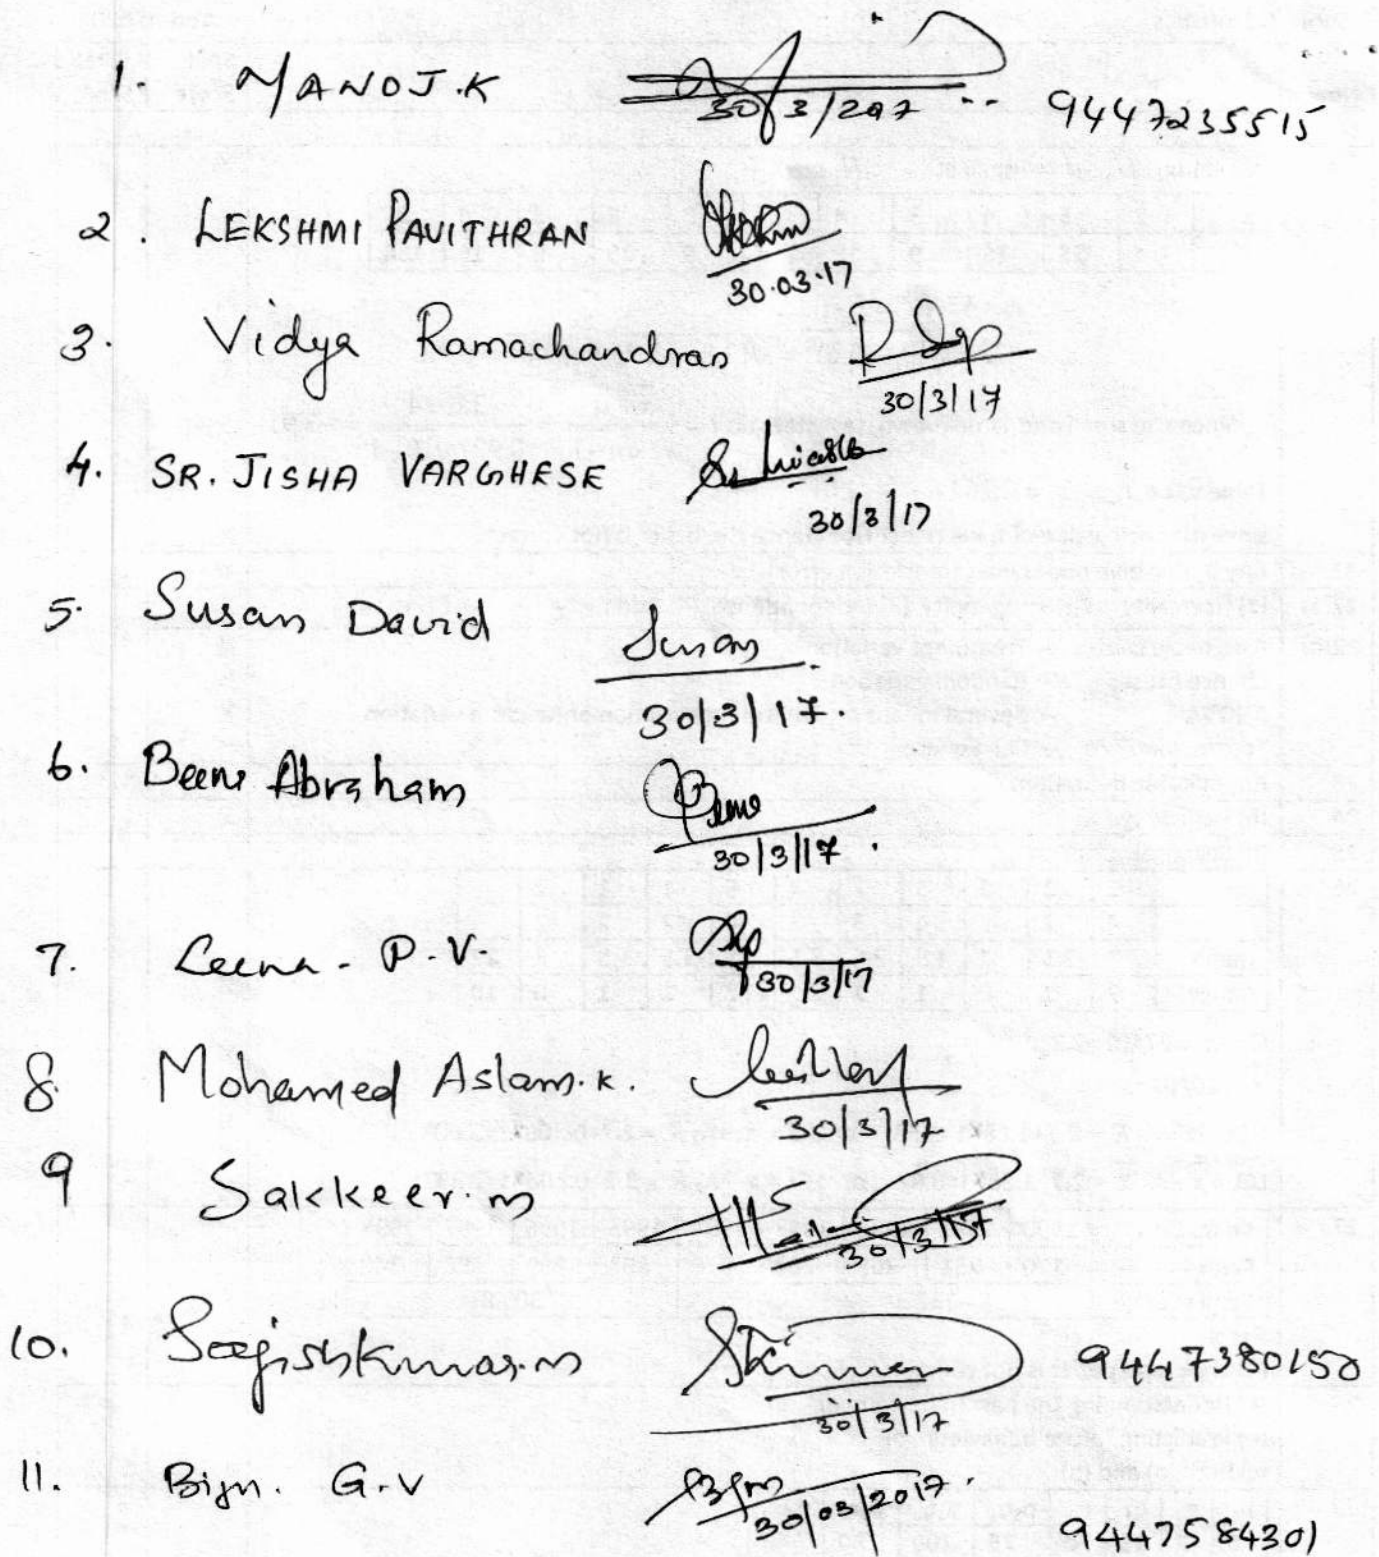 1. MANOJ.K 30/3/2017 9447235515
2. LEKSHMI PAVITHRAN
30.03.17
3. Vidya Ramachandran
30/3/17
4. SR. JISHA VARGHESE
30/3/17
5. Susan David Susan
30/3/17.
6. Beena Abraham Beena
30/3/17.
7. Leena - P.V.
30/3/17
8 Mohamed Aslam.K.
30/3/17
9 Sakkeer.m
30/3/17
10. 9447380150
30/3/17
11. Biju. G.V
30/03/2017.
9447584301